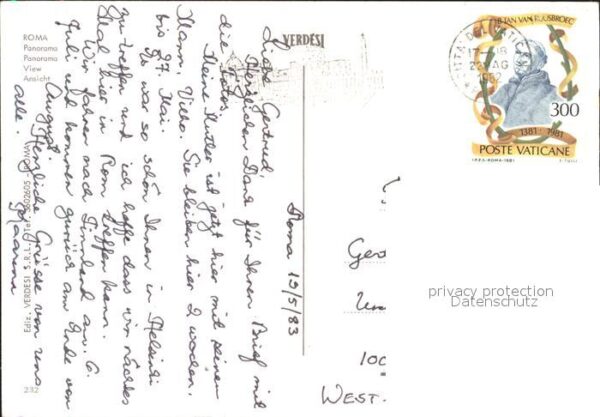 ROMA
Panorama
Panorama
View
Ansicht
VERDESI
Roma 19/5/83
Liebe Gertrud,
Herzlichen Dank für Ihren Brief mit
die Fotos.
Meine Mutter ist jetzt hier mit seinen
Mann, Vilho. Sie bleiben hier 2 wochen,
bis 27 Mai.
Es war so schön Ihnen in Helsinki
zu treffen und ich hoffe dass wir nächstes
Mal hier in Rom treffen kann.
Wir fahren nach Finnland am 6.
Juli und kommen zurück am Ende von
August.
Herzliche Grüsse von uns
alle.
Maarena
EDIZ. VERDESI S.T.R.
ROMA
232
CITTA DEL VATICANO
B. JAN VAN RUUSBROEC
300
1381 - 1981
POSTE VATICANE
I.P.Z.S.-ROMA-1981
Geo
100
WEST-
privacy protection
Datenschutz